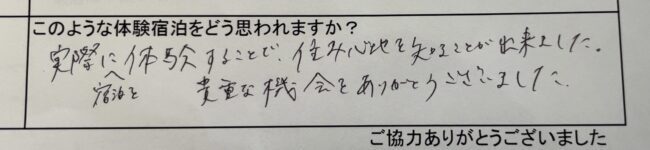 このような体験宿泊をどう思われますか？
実際に体験することで、住み心地を知ることが出来ました。
宿泊を
貴重な機会をありがとうございました
ご協力ありがとうございました